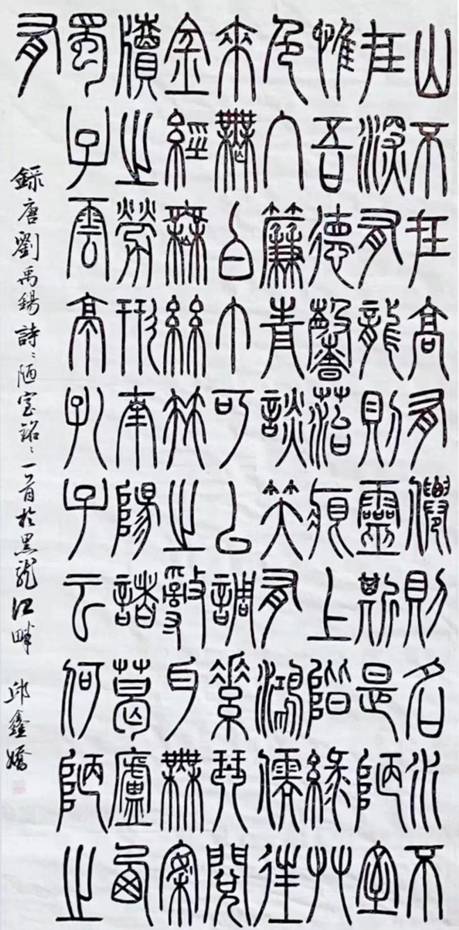 山不在高有僊則名水不
在深有龍則靈斯是陋室
惟吾德馨苔痕上階綠艸
色入簾青談笑有鴻儒往
來無白丁可以調素琴閱
金經無絲竹之亂耳無案
牘之勞形南陽諸葛廬西
蜀子雲亭孔子云何陋之
有
錄唐劉禹錫詩:陋室銘:一首於黑龍江畔 邱鑫嬌